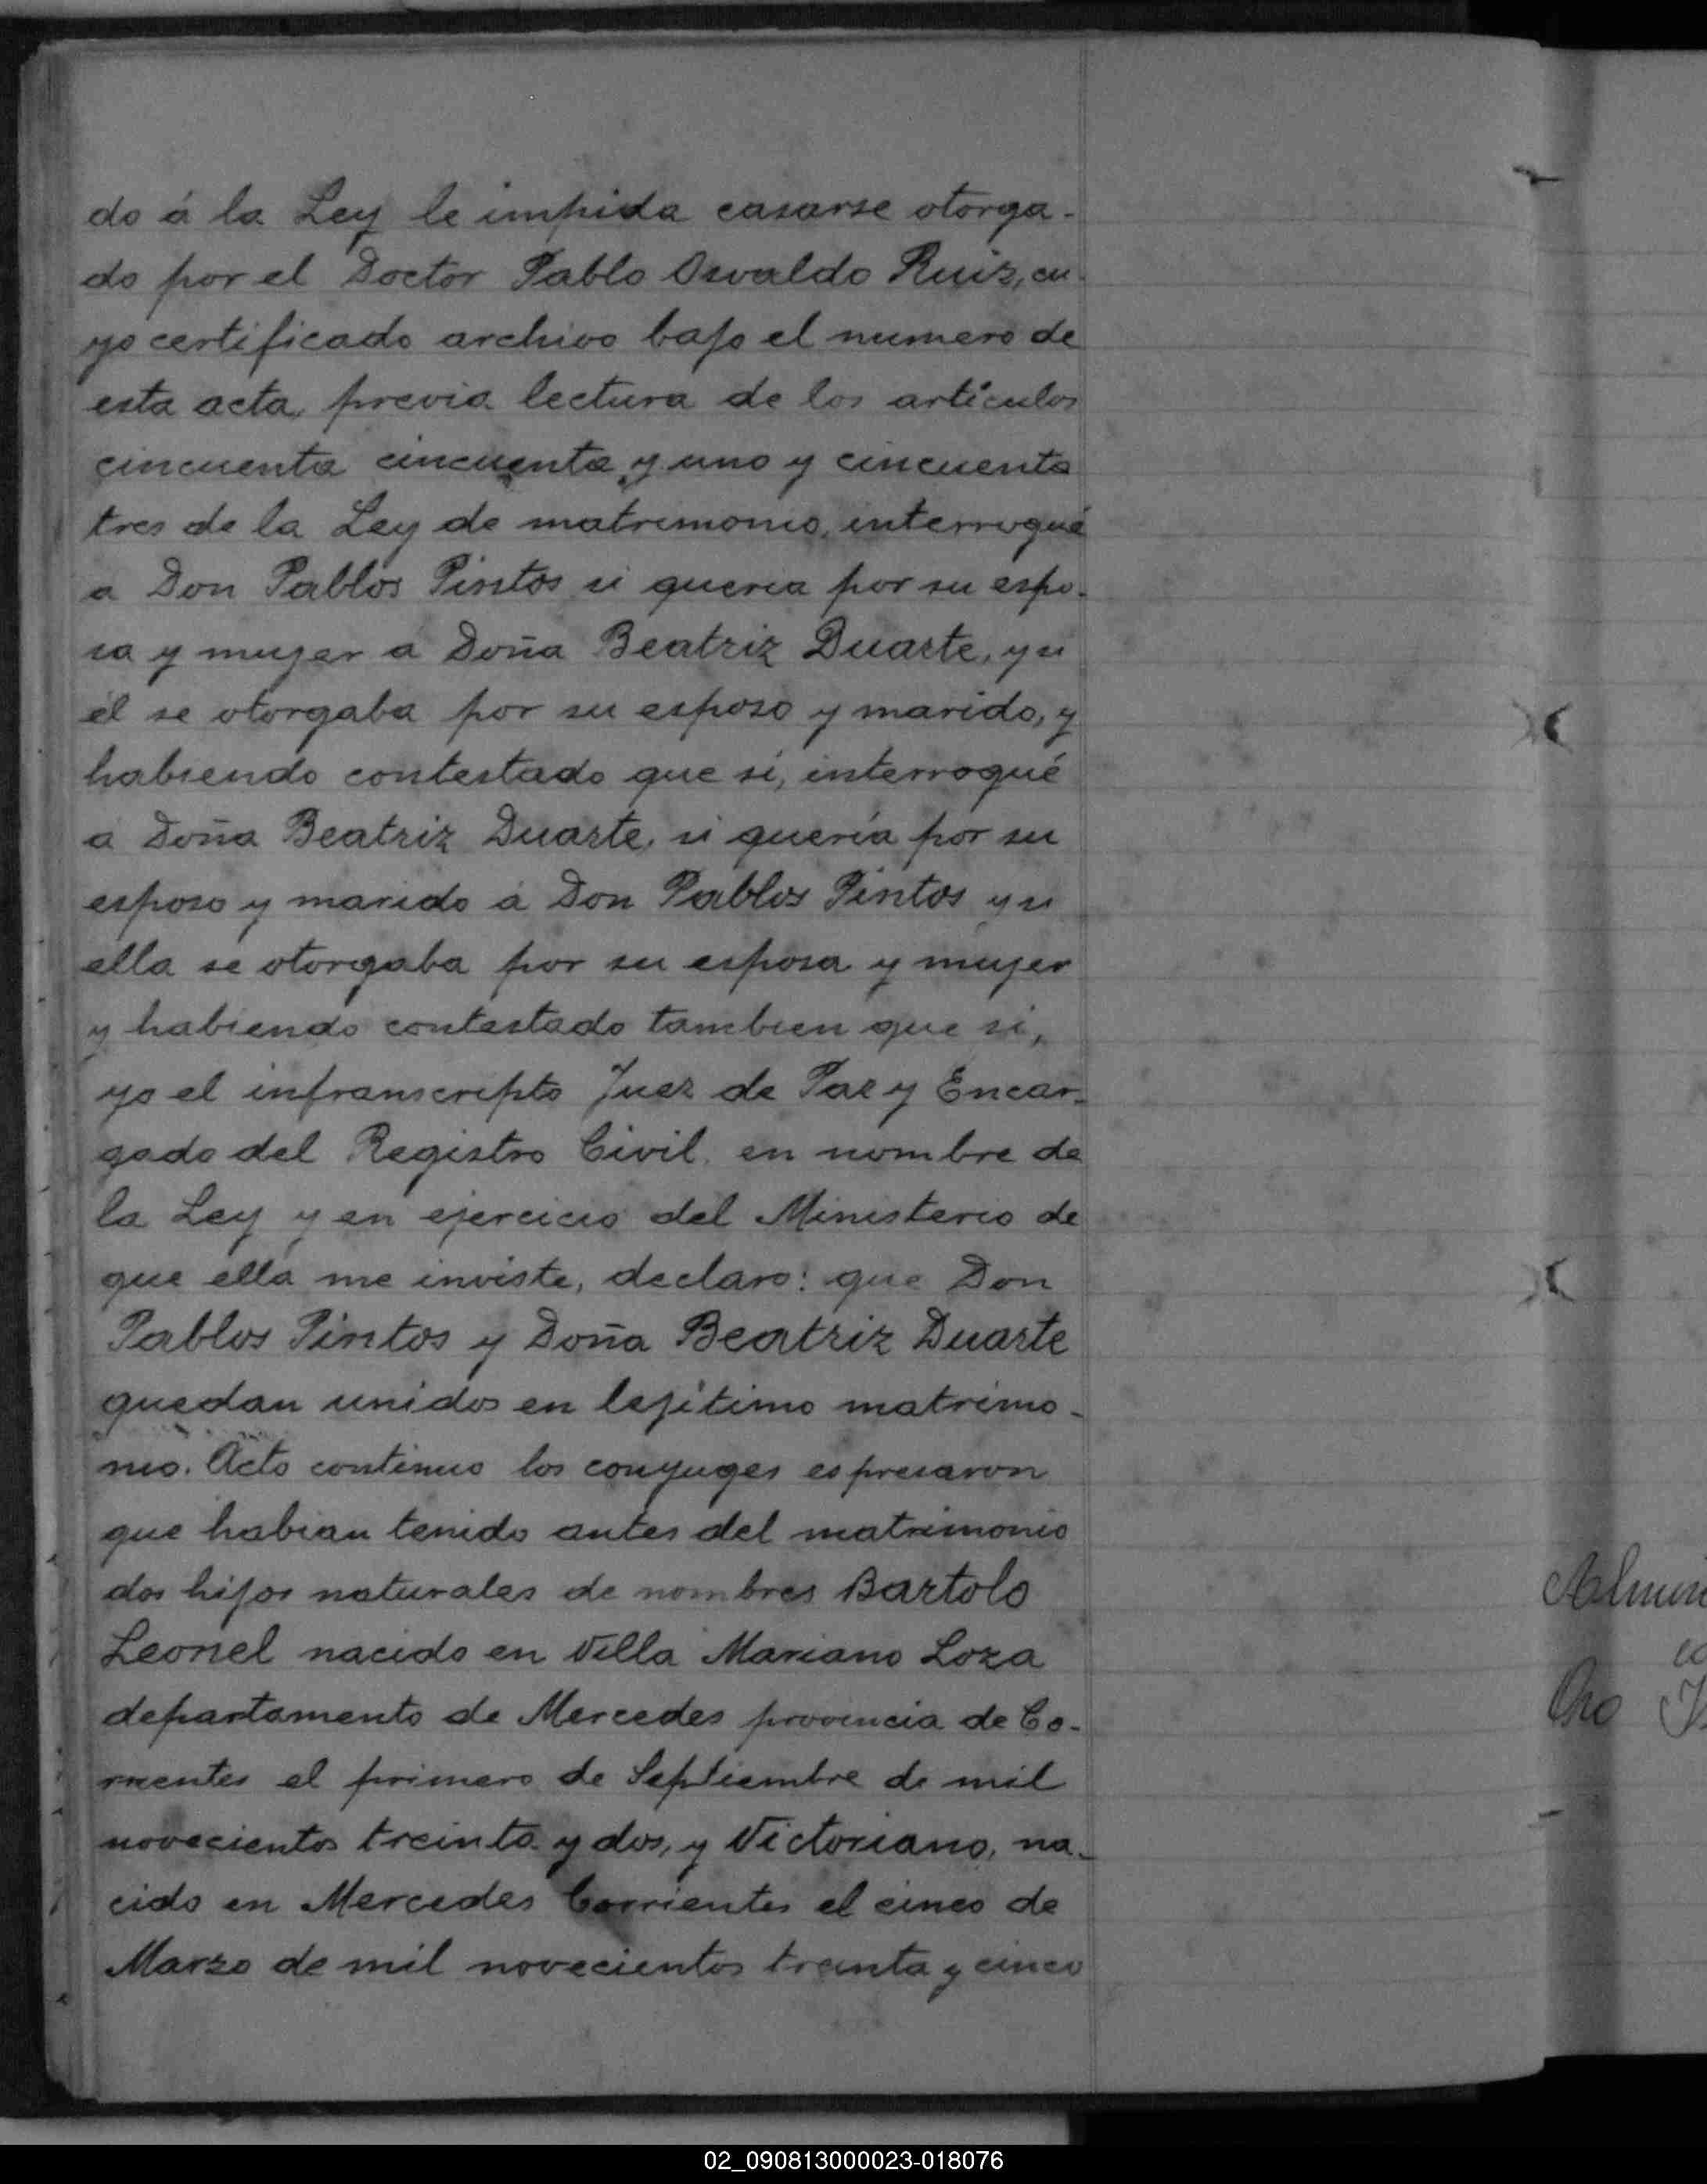 do á la Ley le impida casarse otorga-
do por el Doctor Pablo Osvaldo Ruiz, cu-
yo certificado archivo bajo el numero de
esta acta, previa lectura de los artículos
cincuenta cincuenta y uno y cincuenta
tres de la Ley de matrimonio, interrogué
a Don Pablos Pintos si queria por su espo-
sa y mujer a Doña Beatriz Duarte, y si
él se otorgaba por su esposo y marido, y
habiendo contestado que sí, interrogué
a Doña Beatriz Duarte, si quería por su
esposo y marido á Don Pablos Pintos y si
ella se otorgaba por su esposa y mujer
y habiendo contestado tambien que si,
yo el infranscripto Juez de Paz y Encar-
gado del Registro Civil, en nombre de
la Ley y en ejercicio del Ministerio de
que ella me inviste, declaro: que Don
Pablos Pintos y Doña Beatriz Duarte
quedan unidos en lejítimo matrimo-
nio. Acto continuo los conyuges espresaron
que habian tenido antes del matrimonio
dos hijos naturales de nombres Bartolo
Leonel nacido en Villa Mariano Loza
departamento de Mercedes provincia de Co-
rrientes el primero de Septiembre de mil
novecientos treinta y dos, y Victoriano, na-
cido en Mercedes Corrientes el cinco de
Marzo de mil novecientos treinta y cinco
02_090813000023-018076